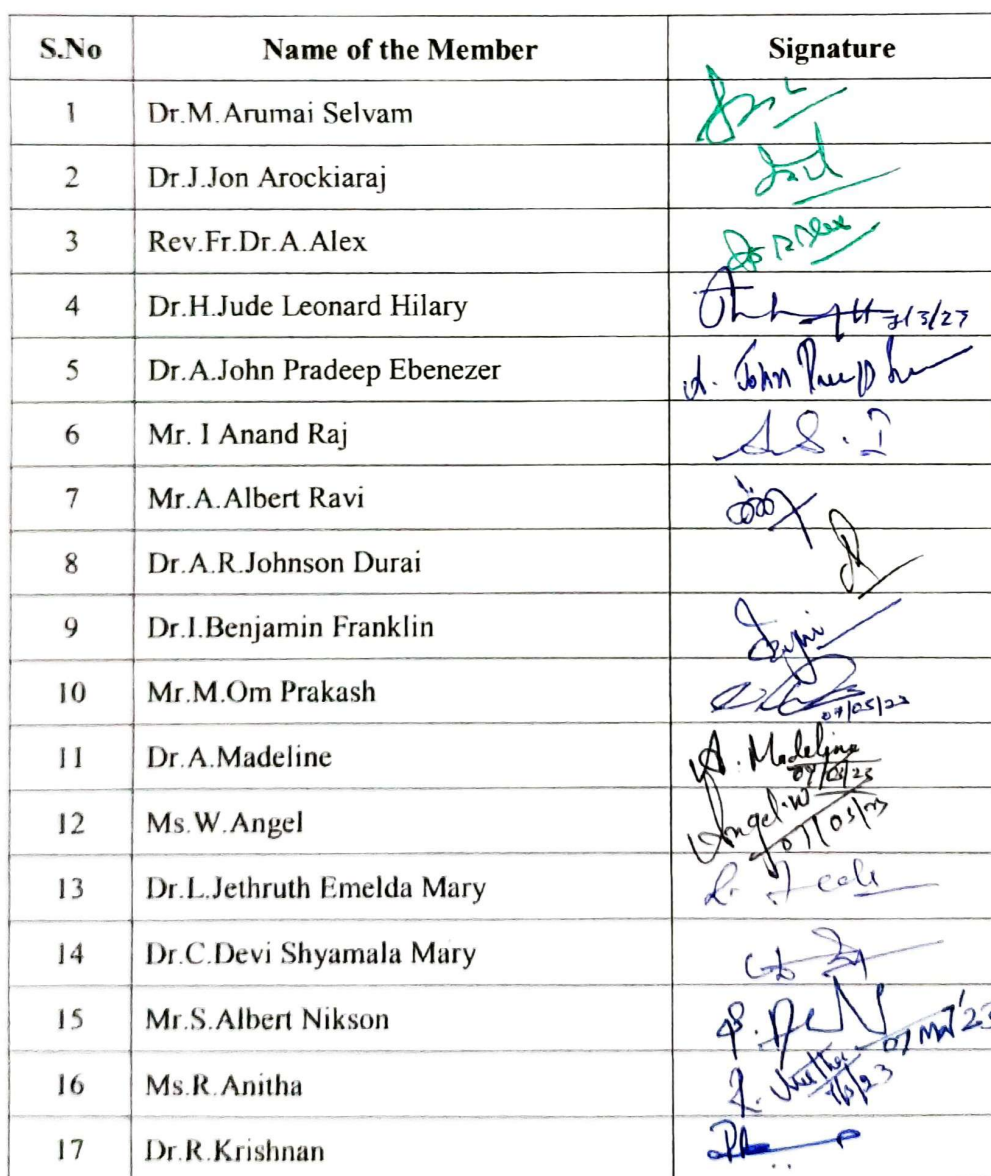 S.No Name of the Member Signature
1 Dr.M.Arumai Selvam
2 Dr.J.Jon Arockiaraj
3 Rev.Fr.Dr.A.Alex
4 Dr.H.Jude Leonard Hilary 7/3/23
5 Dr.A.John Pradeep Ebenezer A. John
6 Mr. I Anand Raj
7 Mr.A.Albert Ravi
8 Dr.A.R.Johnson Durai
9 Dr.I.Benjamin Franklin
10 Mr.M.Om Prakash 07/03/23
11 Dr.A.Madeline A. Madeline 07/03/23
12 Ms.W.Angel Angel.W 07/03/23
13 Dr.L.Jethruth Emelda Mary
14 Dr.C.Devi Shyamala Mary
15 Mr.S.Albert Nikson 07 Mar'23
16 Ms.R.Anitha 7/3/23
17 Dr.R.Krishnan